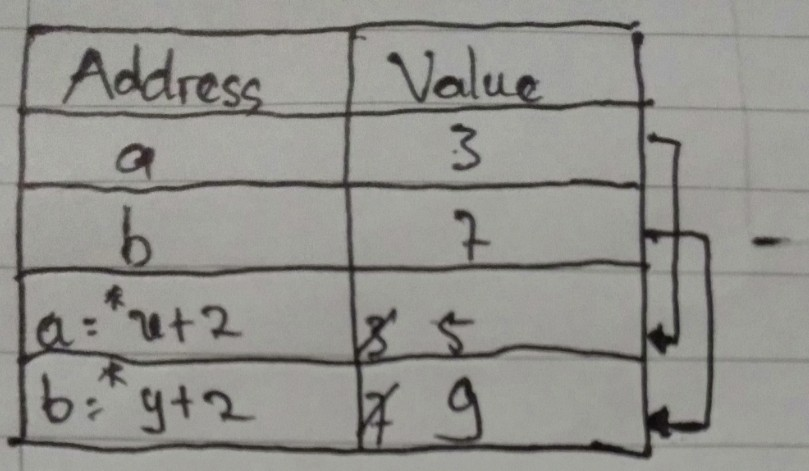 Address Value
a 3
b 7
a=*x+2 3 5
b=*y+2 7 9